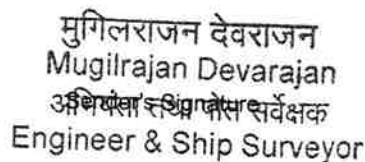 मुगिलराजन देवराजन
Mugilrajan Devarajan
अभियंता तथा पोत सर्वेक्षक
Sender's Signature
Engineer & Ship Surveyor